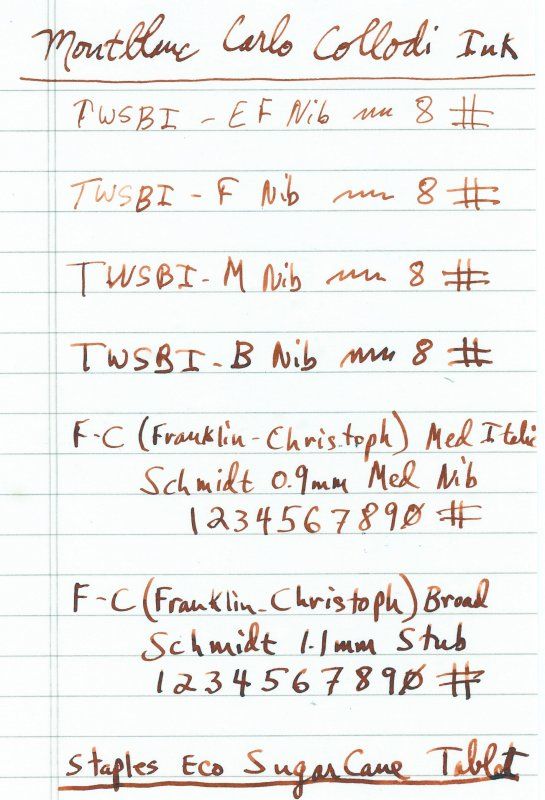 Montblanc Carlo Collodi Ink
TWSBI - EF Nib 8 #
TWSBI - F Nib 8 #
TWSBI - M Nib 8 #
TWSBI - B Nib 8 #
F-C (Franklin-Christoph) Med Italic
Schmidt 0.9mm Med Nib
1234567890 #
F-C (Franklin-Christoph) Broad
Schmidt 1.1mm Stub
1234567890 #
Staples Eco SugarCane Tablet